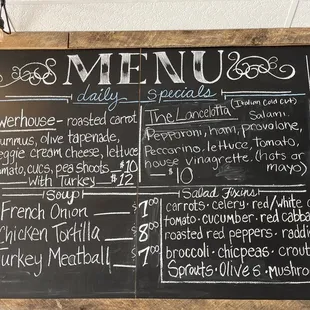 MENU
daily specials
werhouse- roasted carrot
ummus, olive tapenade,
eggie cream cheese, lettuce
omato, cucs, pea shoots $10
with Turkey $12
The Lancelotta (Italian Cold Cut)
Salami,
Pepparoni, ham, provalone,
Peccarino, lettuce, tomato,
house vinagrette. (hots or
mayo)
$10
Soup
French Onion 7.00
Chicken Tortilla 8.00
urkey Meatball 7.00
Salad Fixins
carrots · celery · red/white
tomato · cucumber · red cabba
roasted red peppers · raddi
broccoli · chicpeas · crout
Sprouts · Olives · Mushro